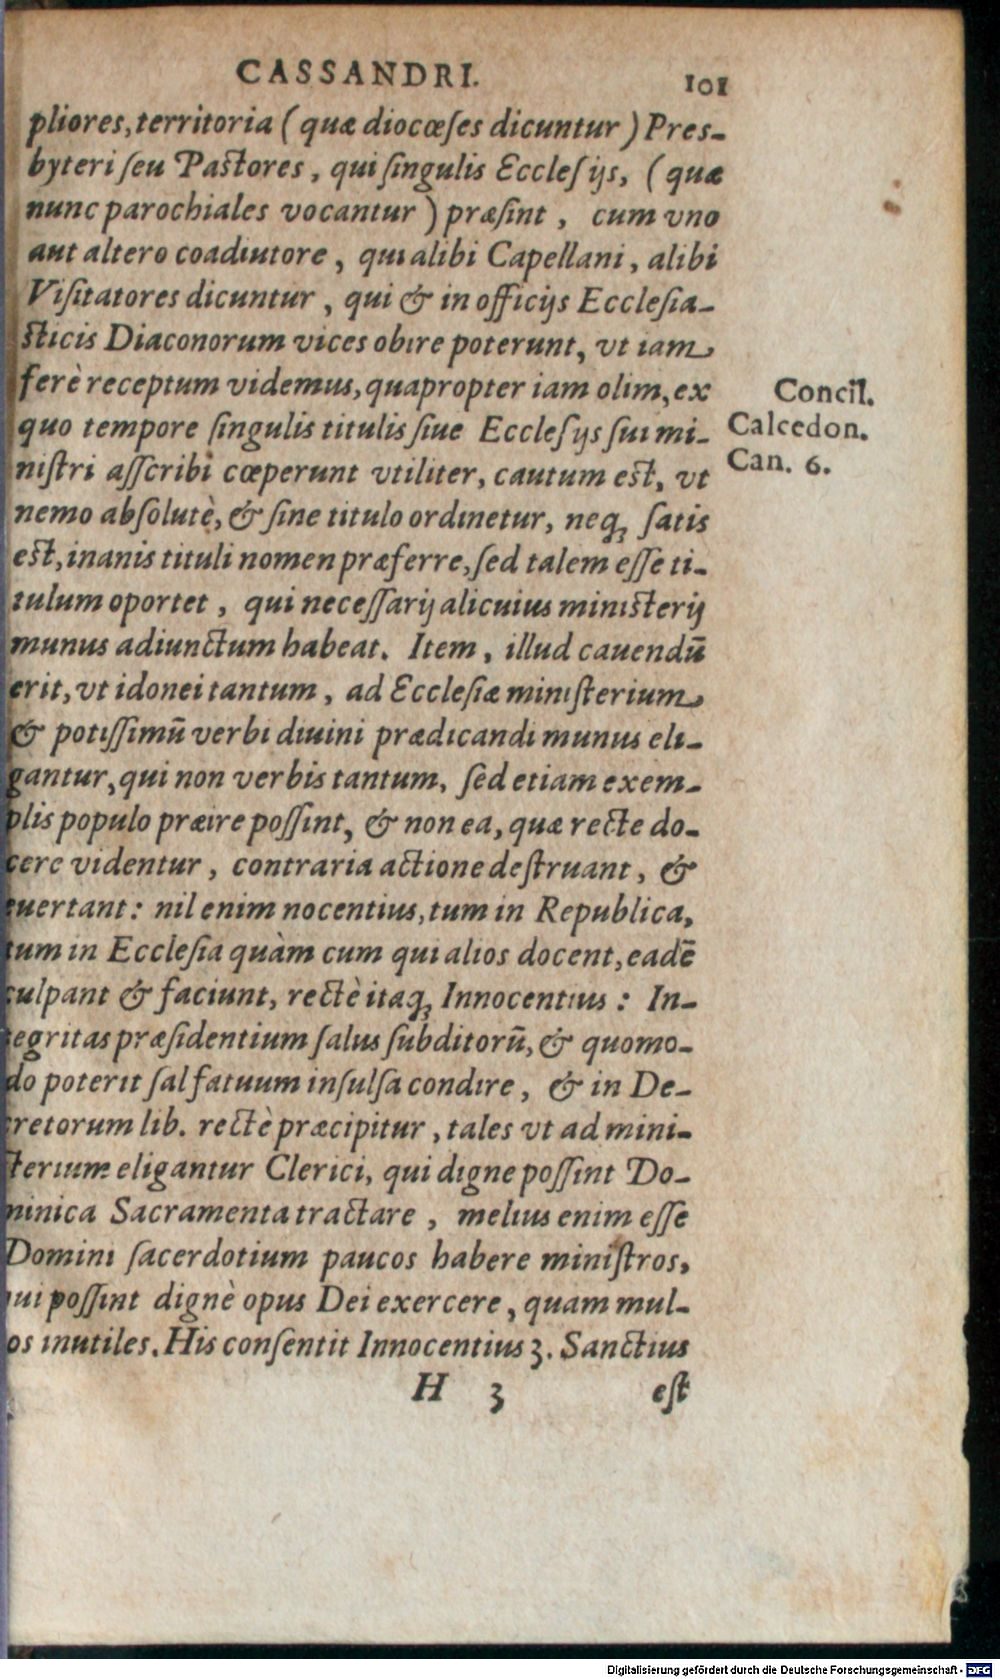 CASSANDRI. 101
pliores, territoria (quæ diocœſes dicuntur) Preſ-
byteri ſeu Paſtores, qui ſingulis Eccleſijs, (quæ
nunc parochiales vocantur) præſint, cum vno
aut altero coadiutore, qui alibi Capellani, alibi
Viſitatores dicuntur, qui & in officijs Eccleſia-
ſticis Diaconorum vices obire poterunt, vt iam
ferè receptum videmus, quapropter iam olim, ex
quo tempore ſingulis titulis ſiue Eccleſijs ſui mi-
niſtri aſſcribi cœperunt vtiliter, cautum eſt, vt
nemo abſolutè, & ſine titulo ordinetur, neq; ſatis
eſt, inanis tituli nomen præferre, ſed talem eſſe ti-
tulum oportet, qui neceſſarij alicuius miniſterij
munus adiunctum habeat. Item, illud cauendū
erit, vt idonei tantum, ad Eccleſiæ miniſterium
& potiſſimū verbi diuini prædicandi munus eli-
gantur, qui non verbis tantum, ſed etiam exem-
plis populo præire poſſint, & non ea, quæ recte do-
cere videntur, contraria actione deſtruant, &
euertant: nil enim nocentius, tum in Republica,
tum in Eccleſia quàm cum qui alios docent, eadē
culpant & faciunt, rectè itaq; Innocentius: In-
tegritas præſidentium ſalus ſubditorū, & quomo-
do poterit ſal fatuum inſulſa condire, & in De-
cretorum lib. rectè præcipitur, tales vt ad mini-
ſterium eligantur Clerici, qui digne poſſint Do-
minica Sacramenta tractare, melius enim eſſe
Domini ſacerdotium paucos habere miniſtros,
qui poſſint dignè opus Dei exercere, quam mul-
os inutiles. His conſentit Innocentius 3. Sanctius
H 3 eſt
Concil.
Calcedon.
Can. 6.
Digitalisierung gefördert durch die Deutsche Forschungsgemeinschaft - DFG